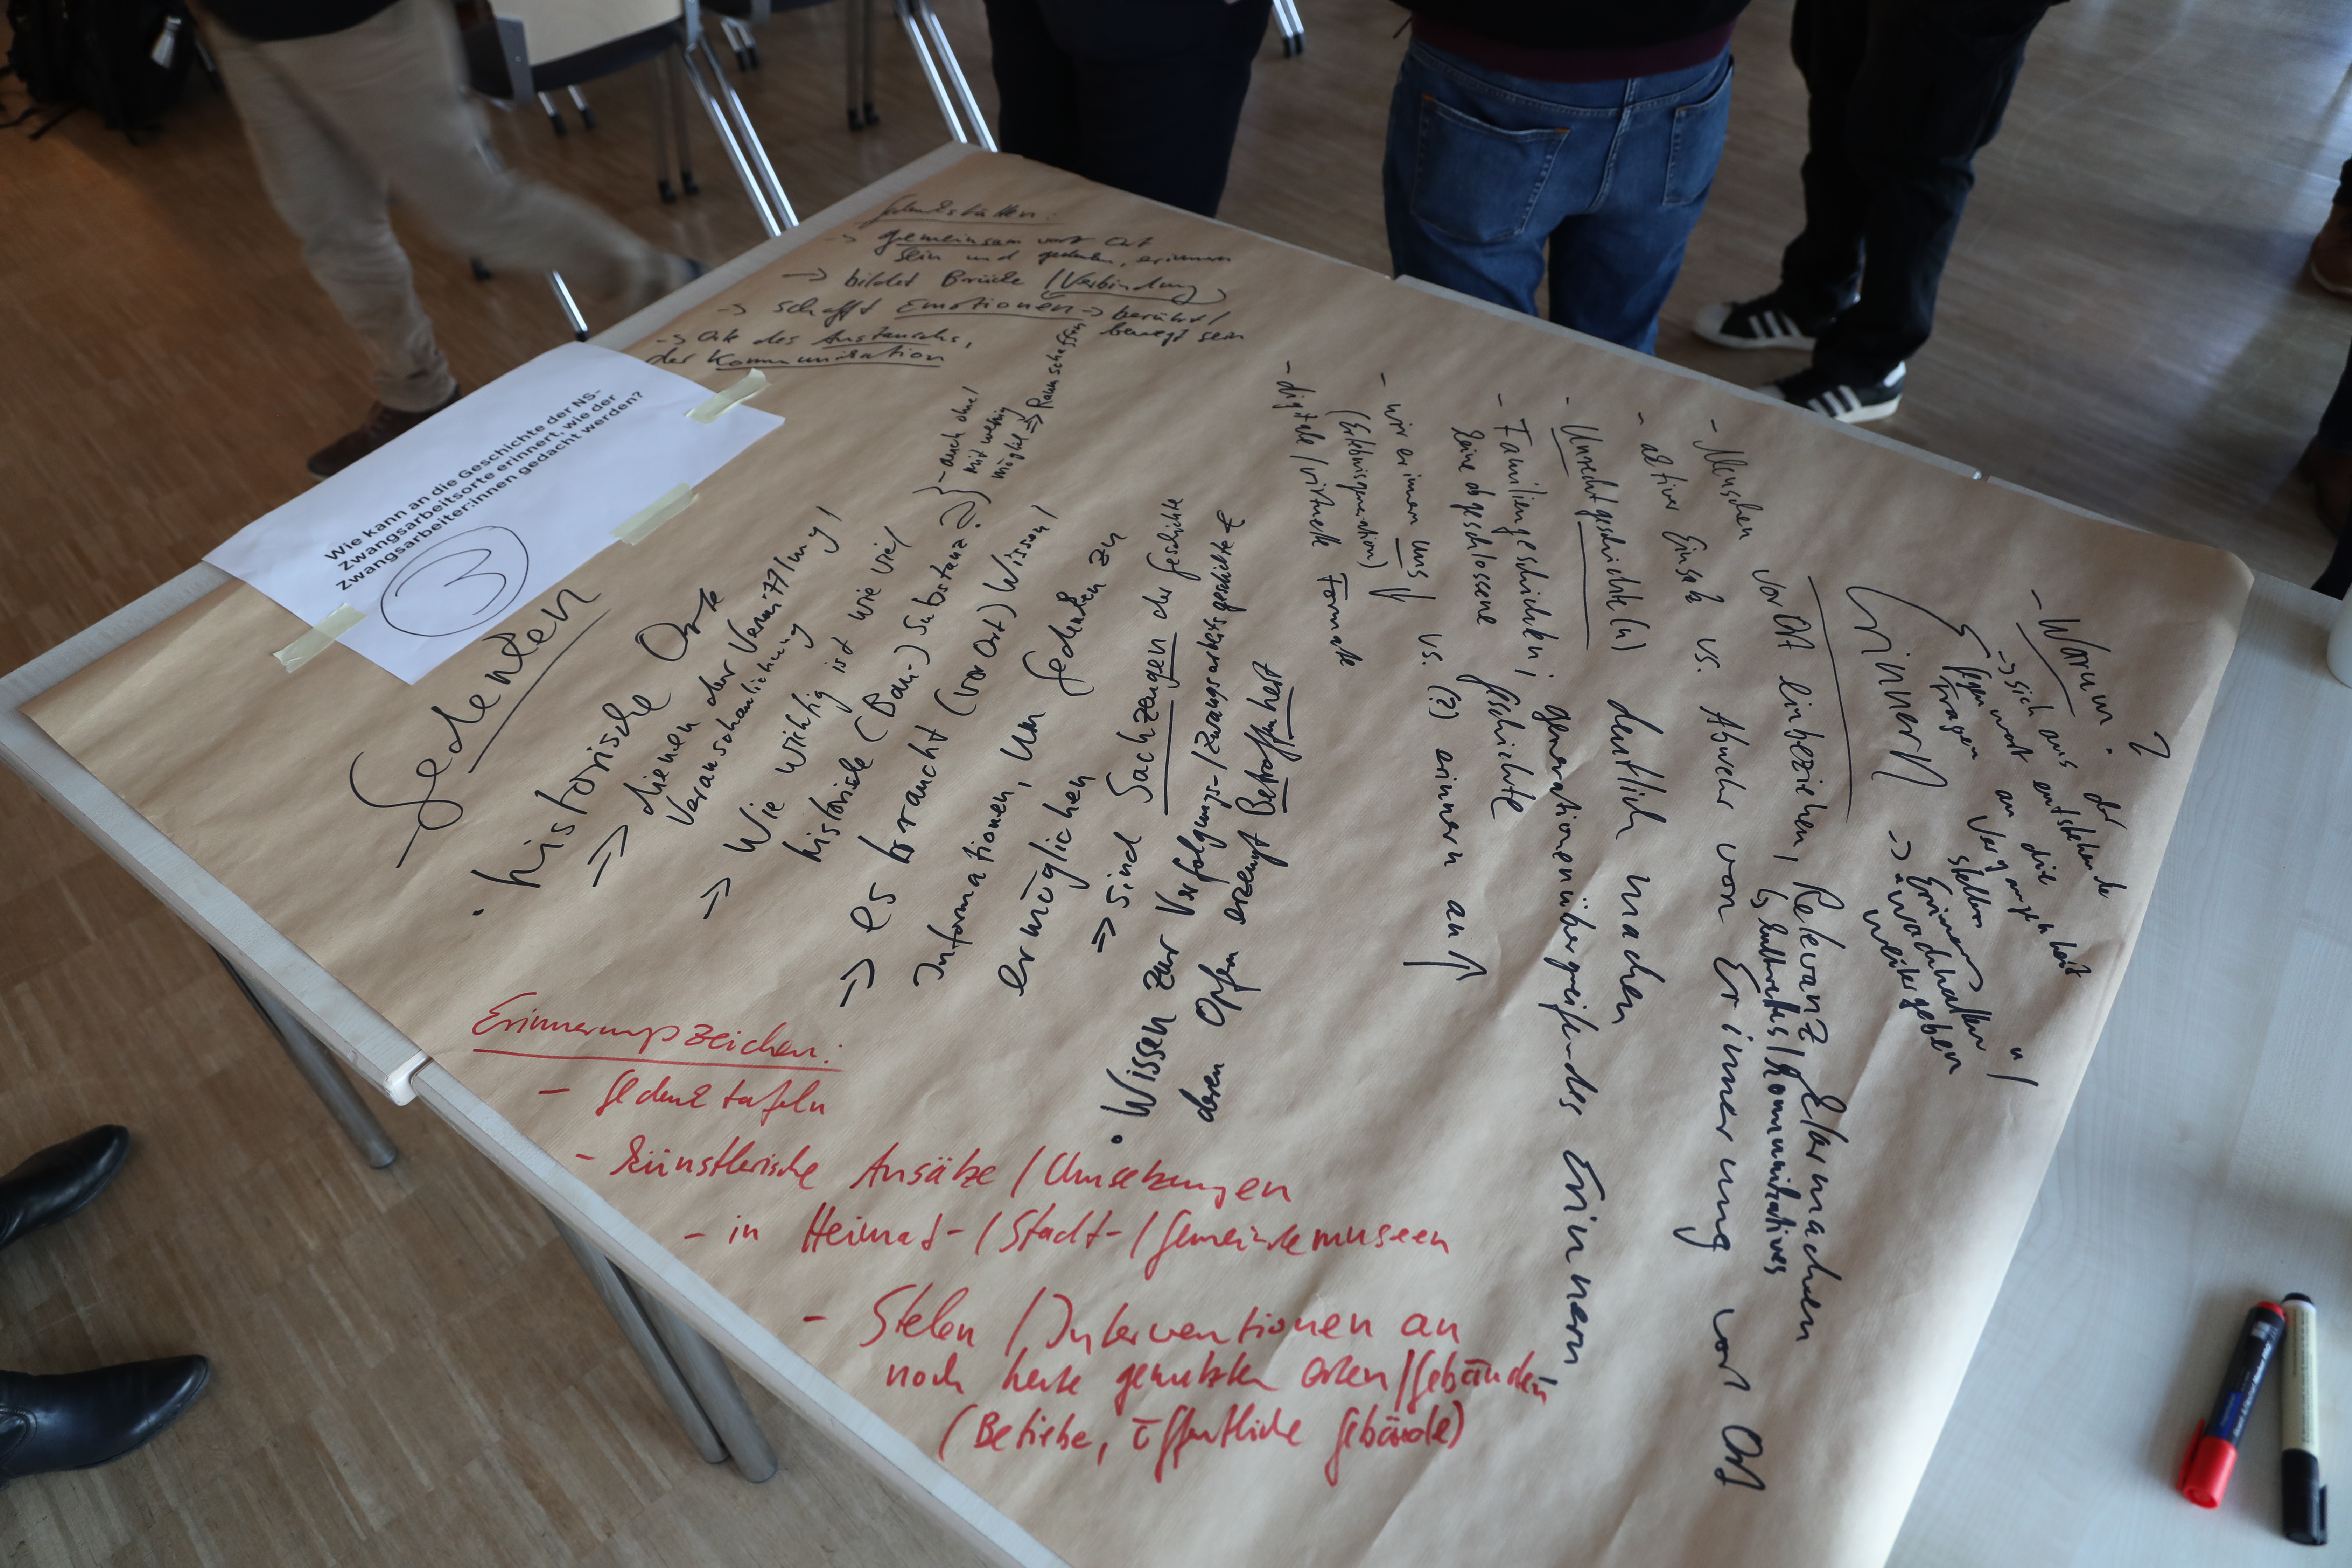 Wie kann an die Geschichte der NS-
Zwangsarbeitsorte erinnert, wie der
Zwangsarbeiter:innen gedacht werden?
3
Gedenkstätten:
-> gemeinsam vor Ort
sein und gedenken, erinnern
-> bildet Brücke / Verbindung
-> schafft Emotionen -> berührt /
bewegt sein
-> Orte des Austauschs,
der Kommunikation
Gedenken
• historische Orte
=> dienen der Vermittlung /
Veranschaulichung
=> Wie wichtig ist wie viel
historische (Bau-) Substanz?
- auch ohne /
mit wenig
möglich => Raum schaffen
=> es braucht (vor Ort) Wissen /
Informationen, um Gedenken zu
ermöglichen
=> sind Sachzeugen der Geschichte
• Wissen zur Verfolgungs-/Zwangsarbeitsgeschichte &
deren Opfern erzeugt Betroffenheit
Erinnerungszeichen:
- Gedenktafeln
- künstlerische Ansätze / Umsetzungen
- in Heimat-/Stadt-/Gemeindemuseen
- Stelen / Interventionen an
noch heute genutzten Orten/Gebäuden
(Betriebe, öffentliche Gebäude)
- Warum?
-> sich aus der
Gegenwart entstehende
Fragen an die
Vergangenheit
stellen
Erinnern
-> "Erinnern
wachhalten"/
weitergeben
- Menschen vor Ort einbeziehen, Relevanz klarmachen
kommunikatives
- aktiver Einsatz vs. Abwehr von Erinnerung vor Ort
- Unrechtsgeschichte(n) deutlich machen
- Familiengeschichten; generationenübergreifendes Erinnern,
keine abgeschlossene Geschichte
- wir erinnern uns vs. (?) erinnern an
(Erlebnisgeneration)
- digitale / virtuelle Formate